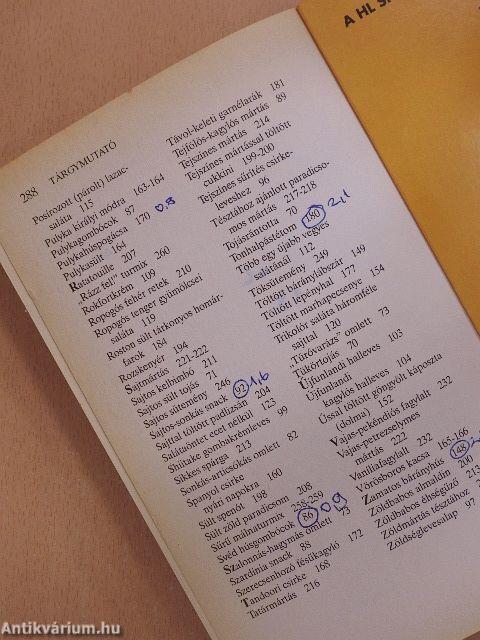 288 TÁRGYMUTATÓ
Posírozott (párolt) lazac-
saláta 115
Pulyka királyi módra 163-164
Pulykagombócok 87
Pulykahúspogácsa 170 0,8
Pulykasült 164
Ratatouille 207
„Rázz fel!" turmix 260
Rokfortkrém 109
Ropogós fehér retek 210
Ropogós tenger gyümölcsei
saláta 119
Roston sült tárkonyos homár-
farok 184
Rozskenyér 194
Sajtmártás 221-222
Sajtos kelbimbó 211
Sajtos sült tojás 71
Sajtos sütemény 246
Sajtos-sonkás snack 92 1,6
Sajttal töltött padlizsán 204
Salátaöntet ecet nélkül 123
Shiitake gombakrémleves 99
Sikkes spárga 213
Sonkás-articsókás omlett 82
Spanyol csirke
nyári napokra 160
Sült spenót 198
Sült zöld paradicsom 208
Sűrű málnaturmix 258-259
Svéd húsgombócok 86 0,9
Szalonnás-hagymás omlett 73
Szardínia snack 88
Szerecsenhozó fésűkagyló 172
Tandoori csirke 168
Tatármártás 216
Távol-keleti garnélarák 181
Tejfölös-kagylós mártás 89
Tejszínes mártás 214
Tejszínes mártással töltött
cukkini 199-200
Tejszínes sűrítés csirke-
leveshez 96
Tésztához ajánlott paradicso-
mos mártás 217-218
Tojásrántotta 70
Tonhalpástétom 180 2,1
Több egy újabb vegyes
salátánál 112
Töksütemény 249
Töltött báránylábszár 149
Töltött lepényhal 177
Töltött marhapecsenye 154
Trikolór saláta háromféle
sajttal 120
„Túróvarázs" omlett 73
Tükörtojás 70
Újfunlandi halleves 103
Újfunlandi
kagylós halleves 104
Ússal töltött göngyölt káposzta
(dolma) 152
Vajas-pekándiós fagylalt 232
Vajas-petrezselymes
mártás 222
Vaníliafagylalt 232
Vörösboros kacsa 165-166
Zamatos bárányhús 148
Zöldbabos almadin 200
Zöldbabos éhségűző 213
Zöldmártás tésztához
Zöldségleveslap 97
A HL
Antikvárium.hu